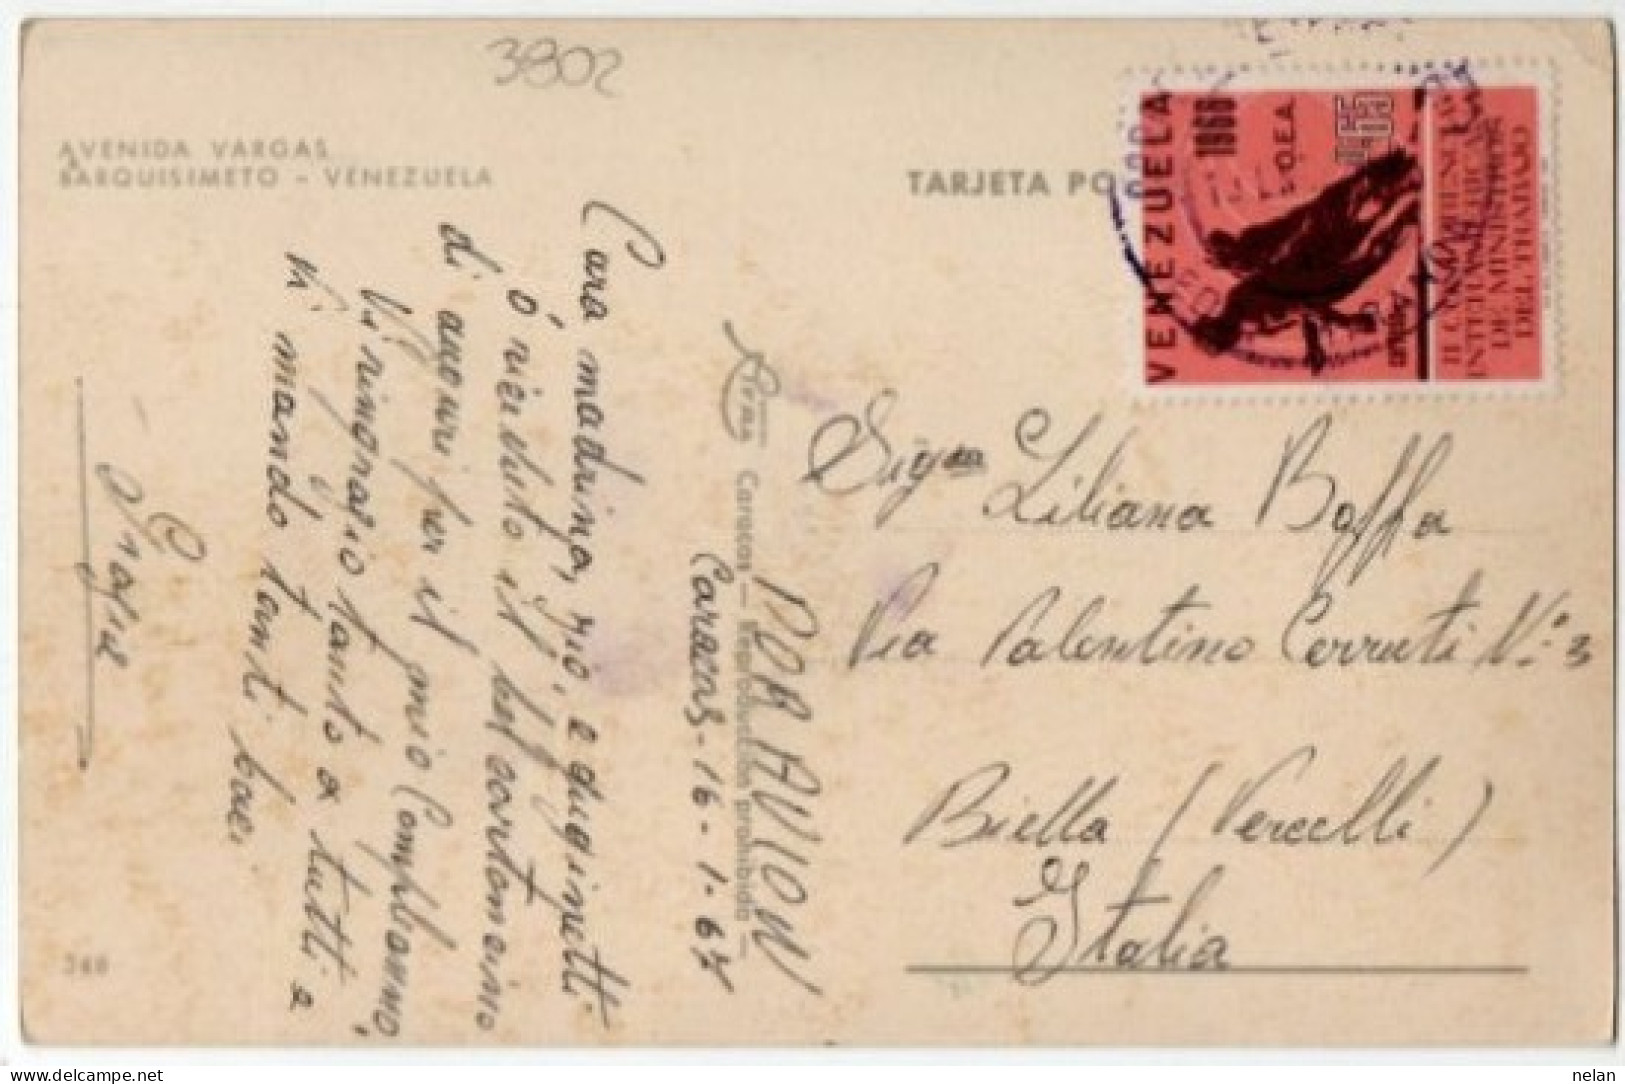 3802
AVENIDA VARGAS
BARQUISIMETO - VENEZUELA
TARJETA PO
VENEZUELA
1966
O.E.A.
0,65
AEREO
II CONFERENCIA
INTERAMERICANA
DE MINISTROS
DEL TRABAJO
Cara madrina, zio, e cuginetti
ò ricevuto il bel cartoncino
di auguri per il mio Compleanno,
Vi ringrazio tanto a tutti e
Vi mando tanti baci
Caracas - 16-1-67
Caracas — Reproducción prohibida —
POR AVION
Sig.na Liliana Boffa
Via Valentino Cerruti N.° 3
Biella (Vercelli)
Italia
nelan